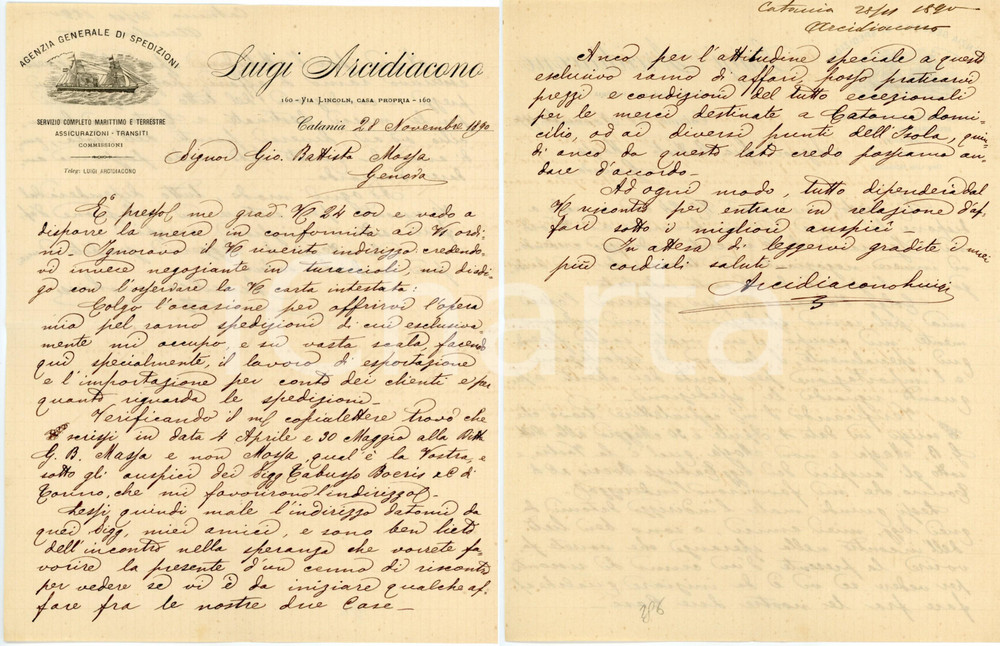 AGENZIA GENERALE DI SPEDIZIONI
Luigi Arcidiacono
160 - VIA LINCOLN, CASA PROPRIA - 160
SERVIZIO COMPLETO MARITTIMO E TERRESTRE
ASSICURAZIONI - TRANSITI
COMMISSIONI
Telegr: LUIGI ARCIDIACONO
Catania 28 Novembre 1890
Signor Gio. Battista Mossa
Genova
È presso me grad. 24 cor e vado a
disporre la merce in conformità ai ordi-
ni. Ignoravo il riverito indirizzo credendo-
vi invece negoziante in turaccioli, mi disdi-
go con l'osservare la carta intestata:
Colgo l'occasione per offrirvi l'opera
mia pel ramo spedizioni di cui esclusiva-
mente mi occupo, e su vasta scala, facendo
qui specialmente, il lavoro di esportazione
e l'importazione per conto dei clienti e per
quanto riguarda le spedizioni_
Verificando il copialettere trovo che
scrissi in data 4 Aprile e 30 Maggio alla Ditta
G. B. Massa e non Mossa, qual'è la Vostra, e
sotto gli auspici dei Sigg Boeris e C di
Torino, che mi favorirono l'indirizzo_
Lessi quindi male l'indirizzo datomi da
quei Sigg, miei amici, e sono ben lieto
dell'incontro nella speranza che vorrete fa-
vorire la presente d'un cenno di riscontro
per vedere se vi è da iniziare qualche af-
fare fra le nostre due Case_
Catania 28/11 1890
Arcidiacono
Anco per l'attitudine speciale a questo
esclusivo ramo di affari, posso praticarvi
prezzi e condizioni del tutto eccezionali
per le merci destinate a Catania domi-
cilio, od ai diversi punti dell'Isola, quin-
di anco da questo lato credo possiamo an-
dare d'accordo_
Ad ogni modo, tutto dipenderà dal
riscontro per entrare in relazione d'af-
fari sotto i migliori auspici_
In attesa di leggervi gradite i miei
più cordiali saluti_
Arcidiacono Luigi
Charta
286